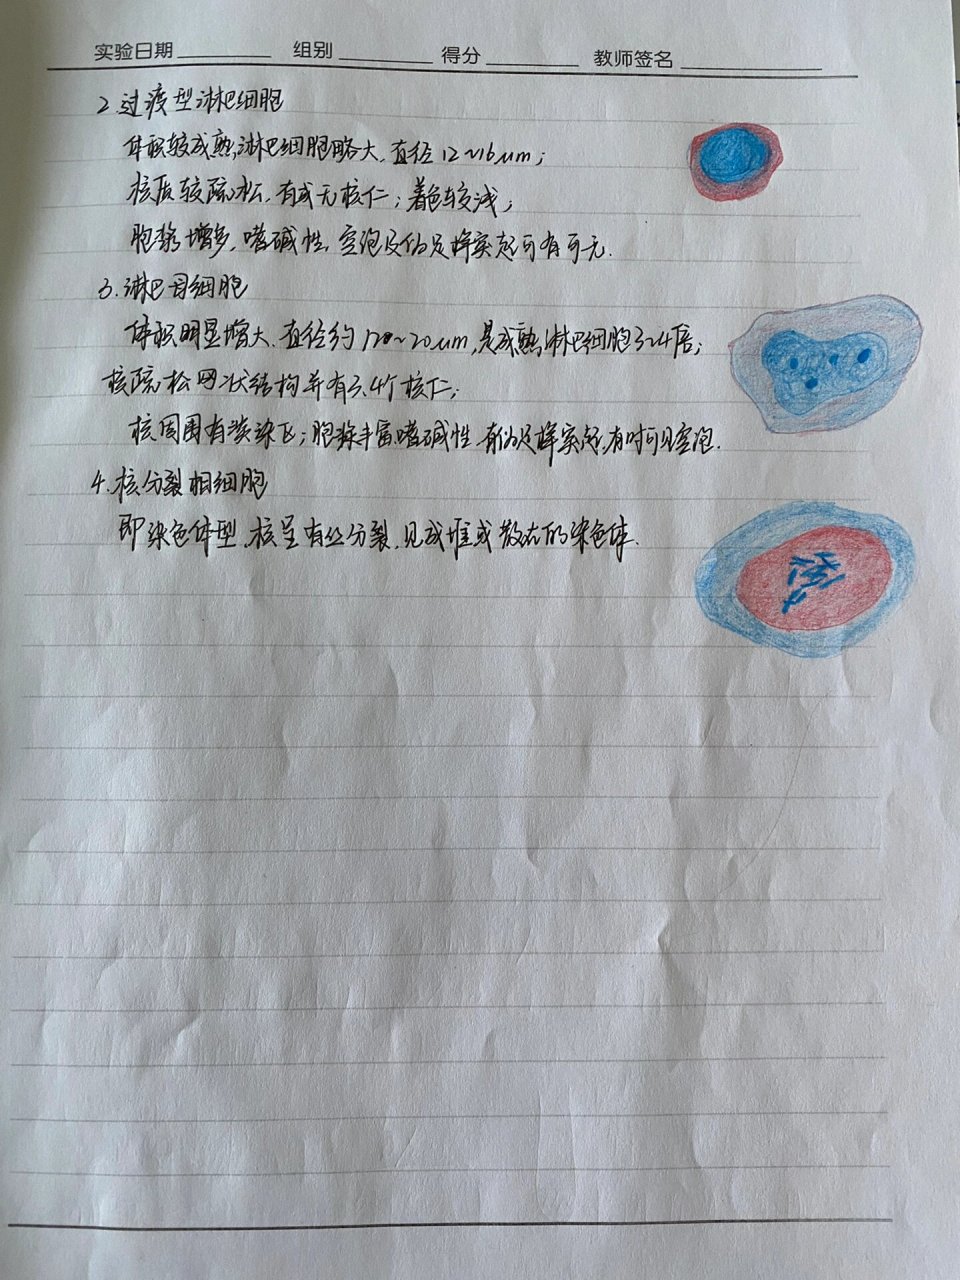 实验日期 组别 得分 教师签名
2.过渡型淋巴细胞
体积较成熟淋巴细胞略大,直径12~16μm;
核质较疏松,有或无核仁;着色较浅;
胞浆增多,嗜碱性,空泡及伪足样突起可有可无.
3.淋巴母细胞
体积明显增大,直径约120~20μm,是成熟淋巴细胞3~4倍;
核疏松网状结构并有3、4个核仁;
核周围有淡染区;胞浆丰富,嗜碱性,有伪足样突起,有时可见空泡.
4.核分裂相细胞
即染色体型,核呈有丝分裂,见成堆或散在的染色体.